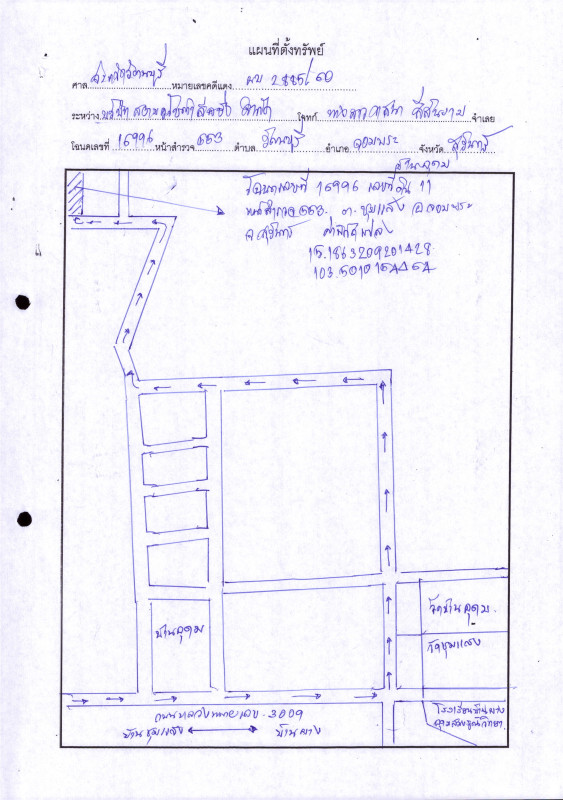 แผนที่ตั้งทรัพย์
ศาล จังหวัดรัตนบุรี หมายเลขคดีแดง ผบ 2885/60
ระหว่าง บริษัท โจทก์ จำเลย
โฉนดเลขที่ 16996 หน้าสำรวจ 663 ตำบล รัตนบุรี อำเภอ จอมพระ จังหวัด สุรินทร์
บ้านอุดม
โฉนดเลขที่ 16996 เลขที่ดิน 11
หน้าสำรวจ 663 ต. ชุมแสง อ. จอมพระ
จ. สุรินทร์ ค่าพิกัดแปลง
15.1863209201428
103.501015
บ้านอุดม
วัดบ้านอุดม
วัดชุมแสง
ถนนหลวงหมายเลข 3009
บ้านชุมแสง
บ้านผาง
โรงเรียนบ้านผาง